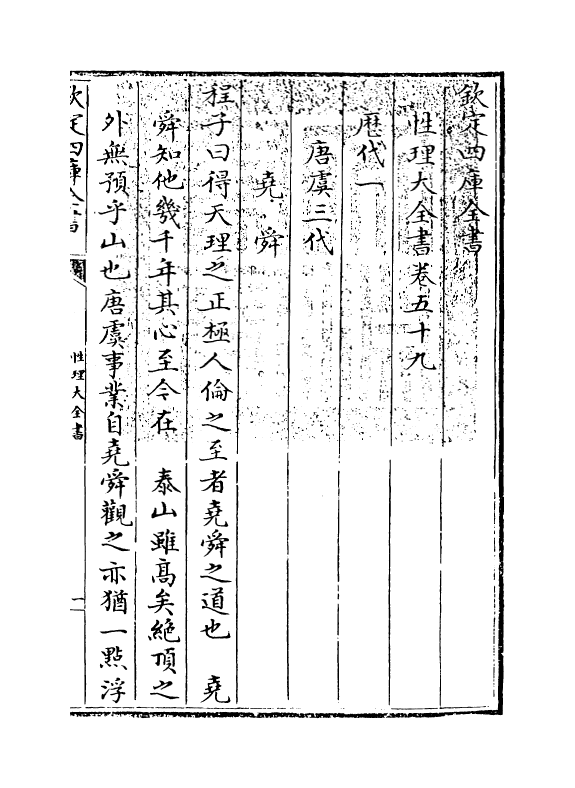 欽定四庫全書
性理大全書卷五十九
歴代一
唐虞三代
堯舜
程子曰得天理之正極人倫之至者堯舜之道也　堯
舜知他幾千年其心至今在　泰山雖髙矣絶頂之
外無預乎山也唐虞事業自堯舜觀之亦猶一㸃浮
欽定四庫全書
性理大全書
一